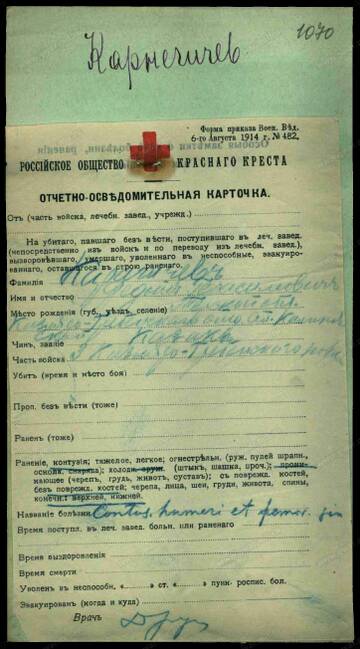 1070
Карнегичев
Форма приказа Воен. Вѣд.
6-го Августа 1914 г. № 482.
РОССІЙСКОЕ ОБЩЕСТВО КРАСНАГО КРЕСТА
ОТЧЕТНО-ОСВѢДОМИТЕЛЬНАЯ КАРТОЧКА.
Отъ (часть войска, лечебн. завед., учрежд.)
На убитаго, павшаго безъ вѣсти, поступившаго въ леч. завед.
(непосредственно изъ войскъ и по переводу изъ лечебн. завед.),
выздоровѣвшаго, умершаго, уволеннаго въ неспособные, эвакуиро-
ваннаго, оставшагося въ строю раненаго.
Фамилія
Имя и отчество
Мѣсто рожденія (губ., уѣздъ, селеніе)
Чинъ, званіе Казакъ
Часть войска 3 Кизляро-Гребенского полка
Убитъ (время и мѣсто боя)
Проп. безъ вѣсти (тоже)
Раненъ (тоже)
Раненіе, контузія; тяжелое, легкое; огнестрѣльн. (руж. пулей шрапн.,
осколк. снаряда); холодн. оруж. (штыкъ, шашка, проч.); прони-
кающее (черепъ, грудь, животъ, суставъ); съ поврежд. костей,
безъ поврежд. костей; черепа, лица, шеи, груди, живота, спины,
конечн.: верхней, нижней.
Названіе болѣзни Contus. humeri et femor.
Время поступл. въ леч. завед. больн. или раненаго
Время выздоровленія
Время смерти
Уволенъ въ неспособн. « » в ст. « » пунк. роспис. бол.
Эвакуированъ (когда и куда)
Врачъ